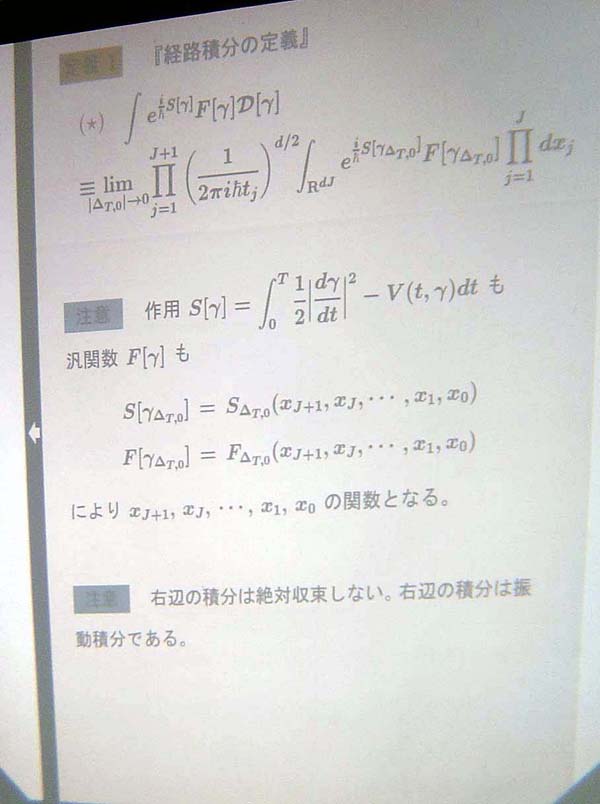 定義 1 『経路積分の定義』
(⋆) ∫ e^{\frac{i}{ℏ}S[γ]} F[γ] 𝒟[γ]
≡ \lim_{|Δ_{T,0}|→0} ∏_{j=1}^{J+1} (\frac{1}{2πiℏt_j})^{d/2} ∫_{R^{dJ}} e^{\frac{i}{ℏ}S[γ_{Δ_{T,0}}]} F[γ_{Δ_{T,0}}] ∏_{j=1}^{J} dx_j
注意 作用 S[γ] = ∫_0^T \frac{1}{2}|\frac{dγ}{dt}|^2 − V(t, γ)dt も
汎関数 F[γ] も
S[γ_{Δ_{T,0}}] = S_{Δ_{T,0}}(x_{J+1}, x_J, ⋯ , x_1, x_0)
F[γ_{Δ_{T,0}}] = F_{Δ_{T,0}}(x_{J+1}, x_J, ⋯ , x_1, x_0)
により x_{J+1}, x_J, ⋯, x_1, x_0 の関数となる。
注意 右辺の積分は絶対収束しない。右辺の積分は振
動積分である。